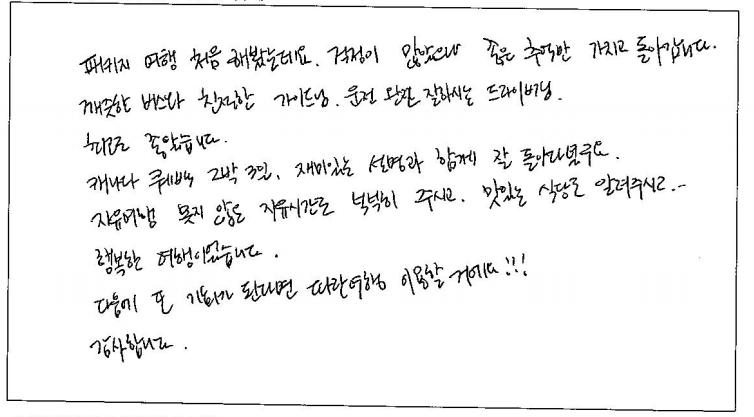 패키지 여행 처음 해봤는데요. 걱정이 많았으나 좋은 추억만 가지고 돌아갑니다.
깨끗한 버스와 친절한 가이드님. 운전 완전 잘하시는 드라이버님.
최고로 좋았습니다.
캐나다 퀘백 2박 3일. 재미있는 설명과 함께 잘 돌아다녔구요.
자유여행 못지 않은 자유시간도 넉넉히 주시고. 맛있는 식당도 알려주시고..
행복한 여행이었습니다.
다음에 또 기회가 된다면 파란여행 이용할 거에요!!!
감사합니다.